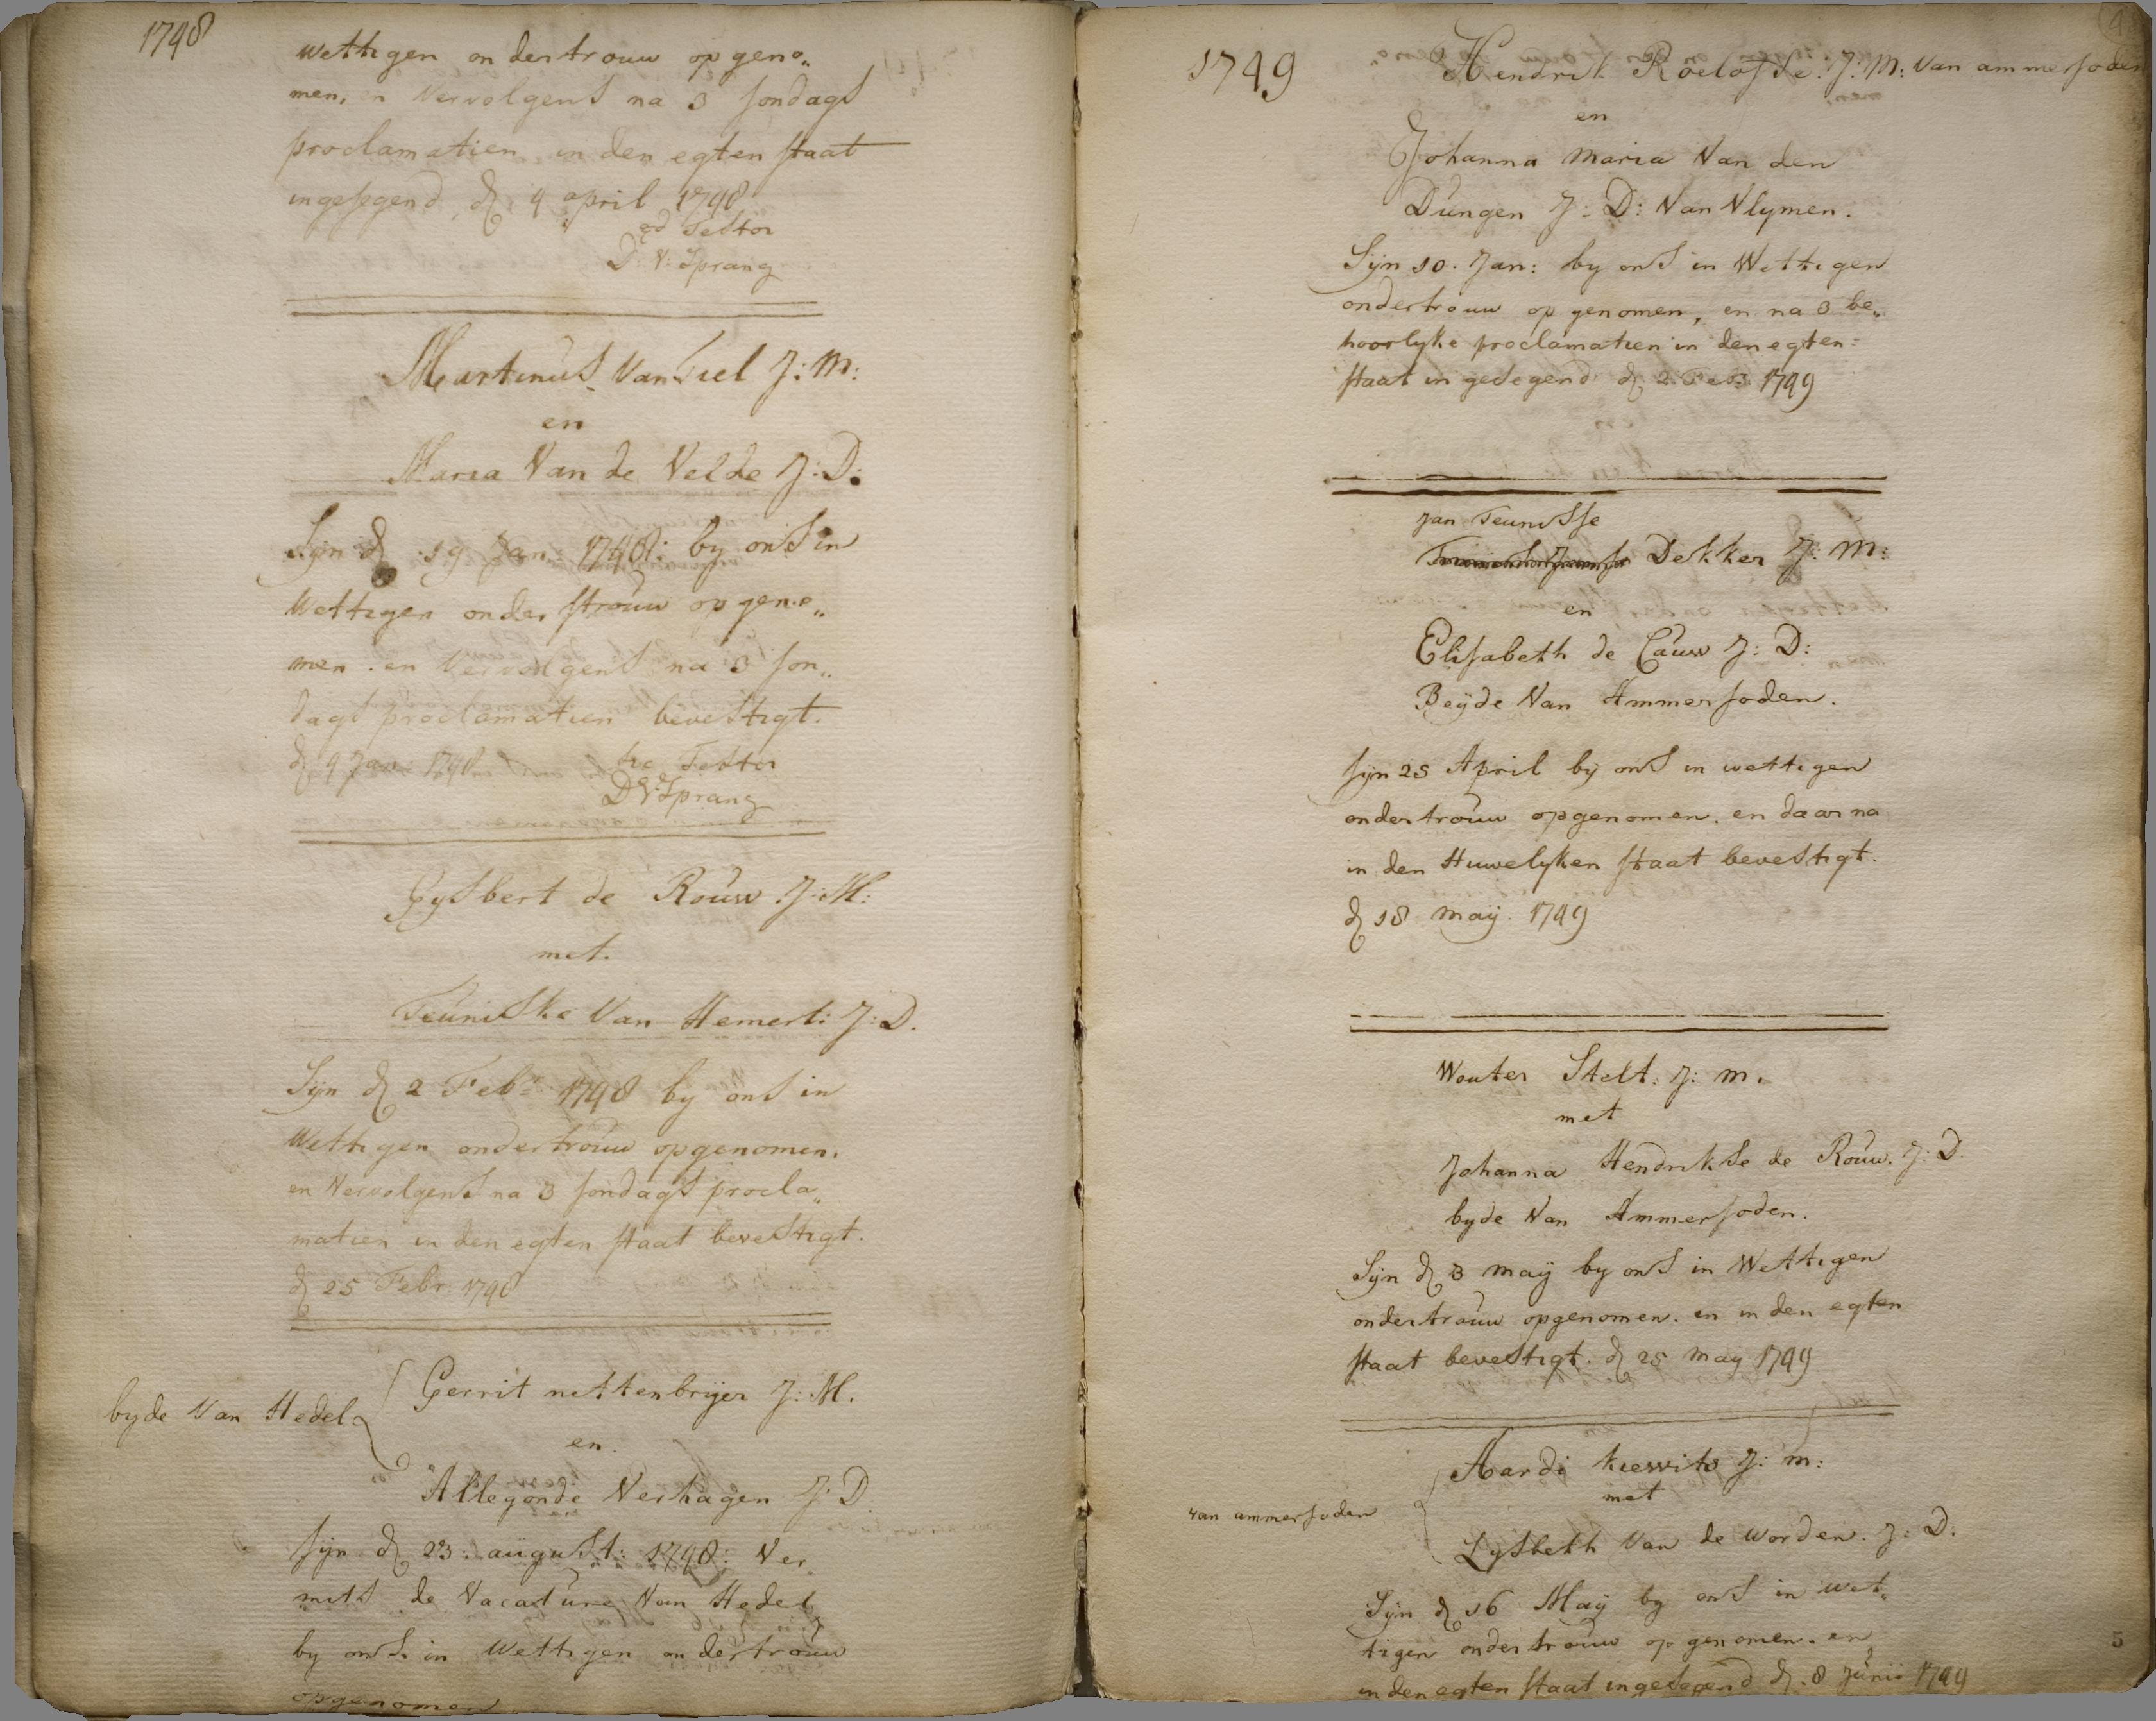 1748
wettigen ondertrouw opgeno„
men, en vervolgens na 3 sondags
proclamatien in den egten staat
ingesegend, d 4 april 1748
qd Testor
D: V: Sprang
Martinus Van Tiel J: M:
en
Maria Van de Velde J: D:
Sijn d 19 Jan: 1748: by ons in
Wettigen onderstrouw opgeno„
men. en Vervolgens na 3 son„
dags proclamatien bevestigt.
d, 4 Jan: 1748
Testor
D V: Sprang
Gysbert de Rouw J: M:
met.
Teuniske Van Hemert: J: D.
Sijn d 2 Febr 1748 by ons in
Wettigen ondertrouw opgenomen.
en Vervolgens na 3 sondags procla„
matien in den egten staat bevestigt.
d 25 Febr 1748
Gerrit nettenbrijer J: M.
byde Van Hedel
en
Allegonde Verhagen J: D
sijn d 23: august: 1748: Ver
mits de Vacature Van Hedel
by ons in Wettigen ondertrouw
opgenomen
1749
Hendrik Roelofse: J: M: Van ammersoden
en
Johanna Maria Van den
Dungen J: D: Van Vlymen.
Sijn 10. Jan: by ons in Wettigen
ondertrouw opgenomen, en na 3 be„
hoorlyke proclamatien in den egten:
staat in gesegend d 2 Feb: 1749
Jan Teunisse
Dekker J: M:
en
Elisabeth de Cauw J: D:
Beyde Van Ammersoden.
sijn 25 April bij ons in wettigen
ondertrouw opgenomen. en daar na
in den Huwelyken staat bevestigt.
d 18 maij. 1749
Wouter Stelt: J: m.
met
Johanna Hendrikse de Rouw. J: D.
byde Van Ammersoden.
Sijn d 3 maij by ons in Wettigen
ondertrouw opgenomen. en in den egten
staat bevestigt. d 25 may 1749
Aardi kiewits J: m:
met
van ammersoden
Lysbeth Van de Worden. J: D.
Sijn d 16 Maij by ons in wet„
tigen ondertrouw opgenomen. en
in den egten staat ingesegend d. 8 Junii 1749
5